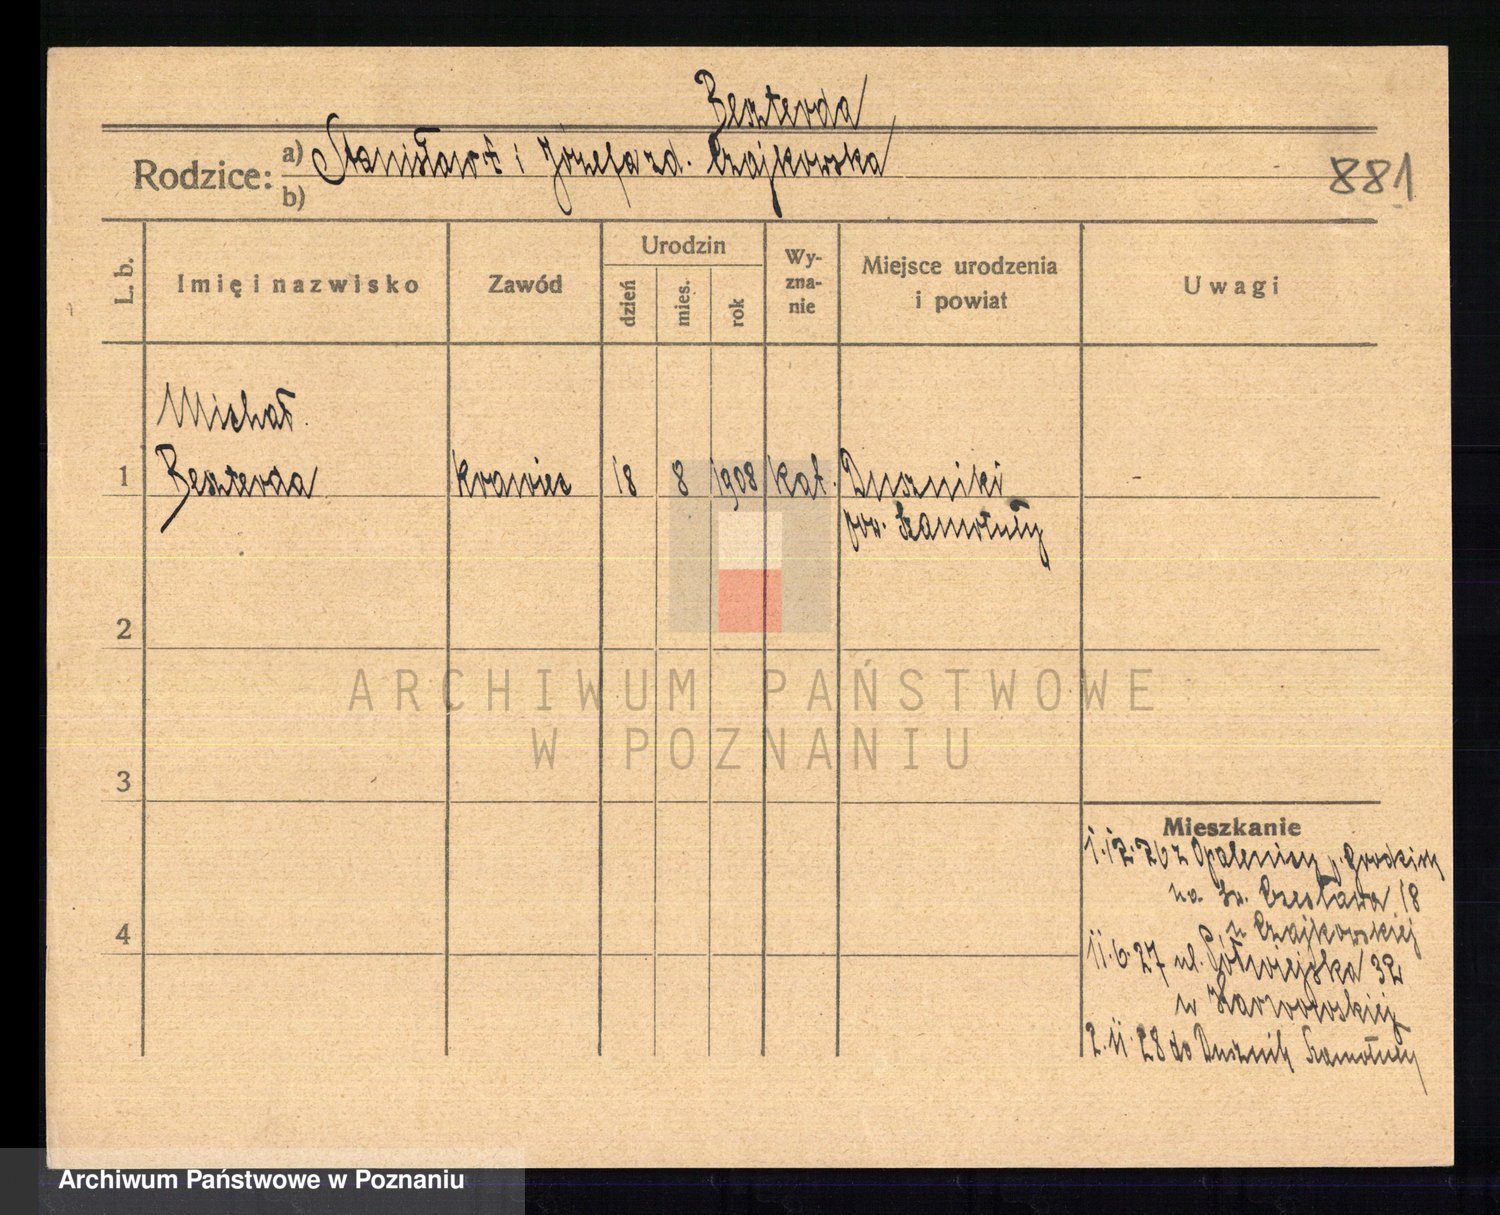 Beszterda
Rodzice: a) Stanisław † i Józefa zd. Czajkowska
b)
881
L. b.
Imię i nazwisko
Zawód
Urodzin
dzień
mies.
rok
Wy-
zna-
nie
Miejsce urodzenia
i powiat
Uwagi
Michał
1 Beszterda krawiec 18 8 1908 kat. Duszniki
pow. Szamotuły
2
3
4
Mieszkanie
1.12.26 z Opalenicy p. Grodzisk
na Św. Czesława 18
u Czajkowskiej
11.6.27 ul. Półwiejska 32
u Karwowskiej
2.11.28 do Dusznik Szamotuły
ARCHIWUM PAŃSTWOWE
W POZNANIU
Archiwum Państwowe w Poznaniu